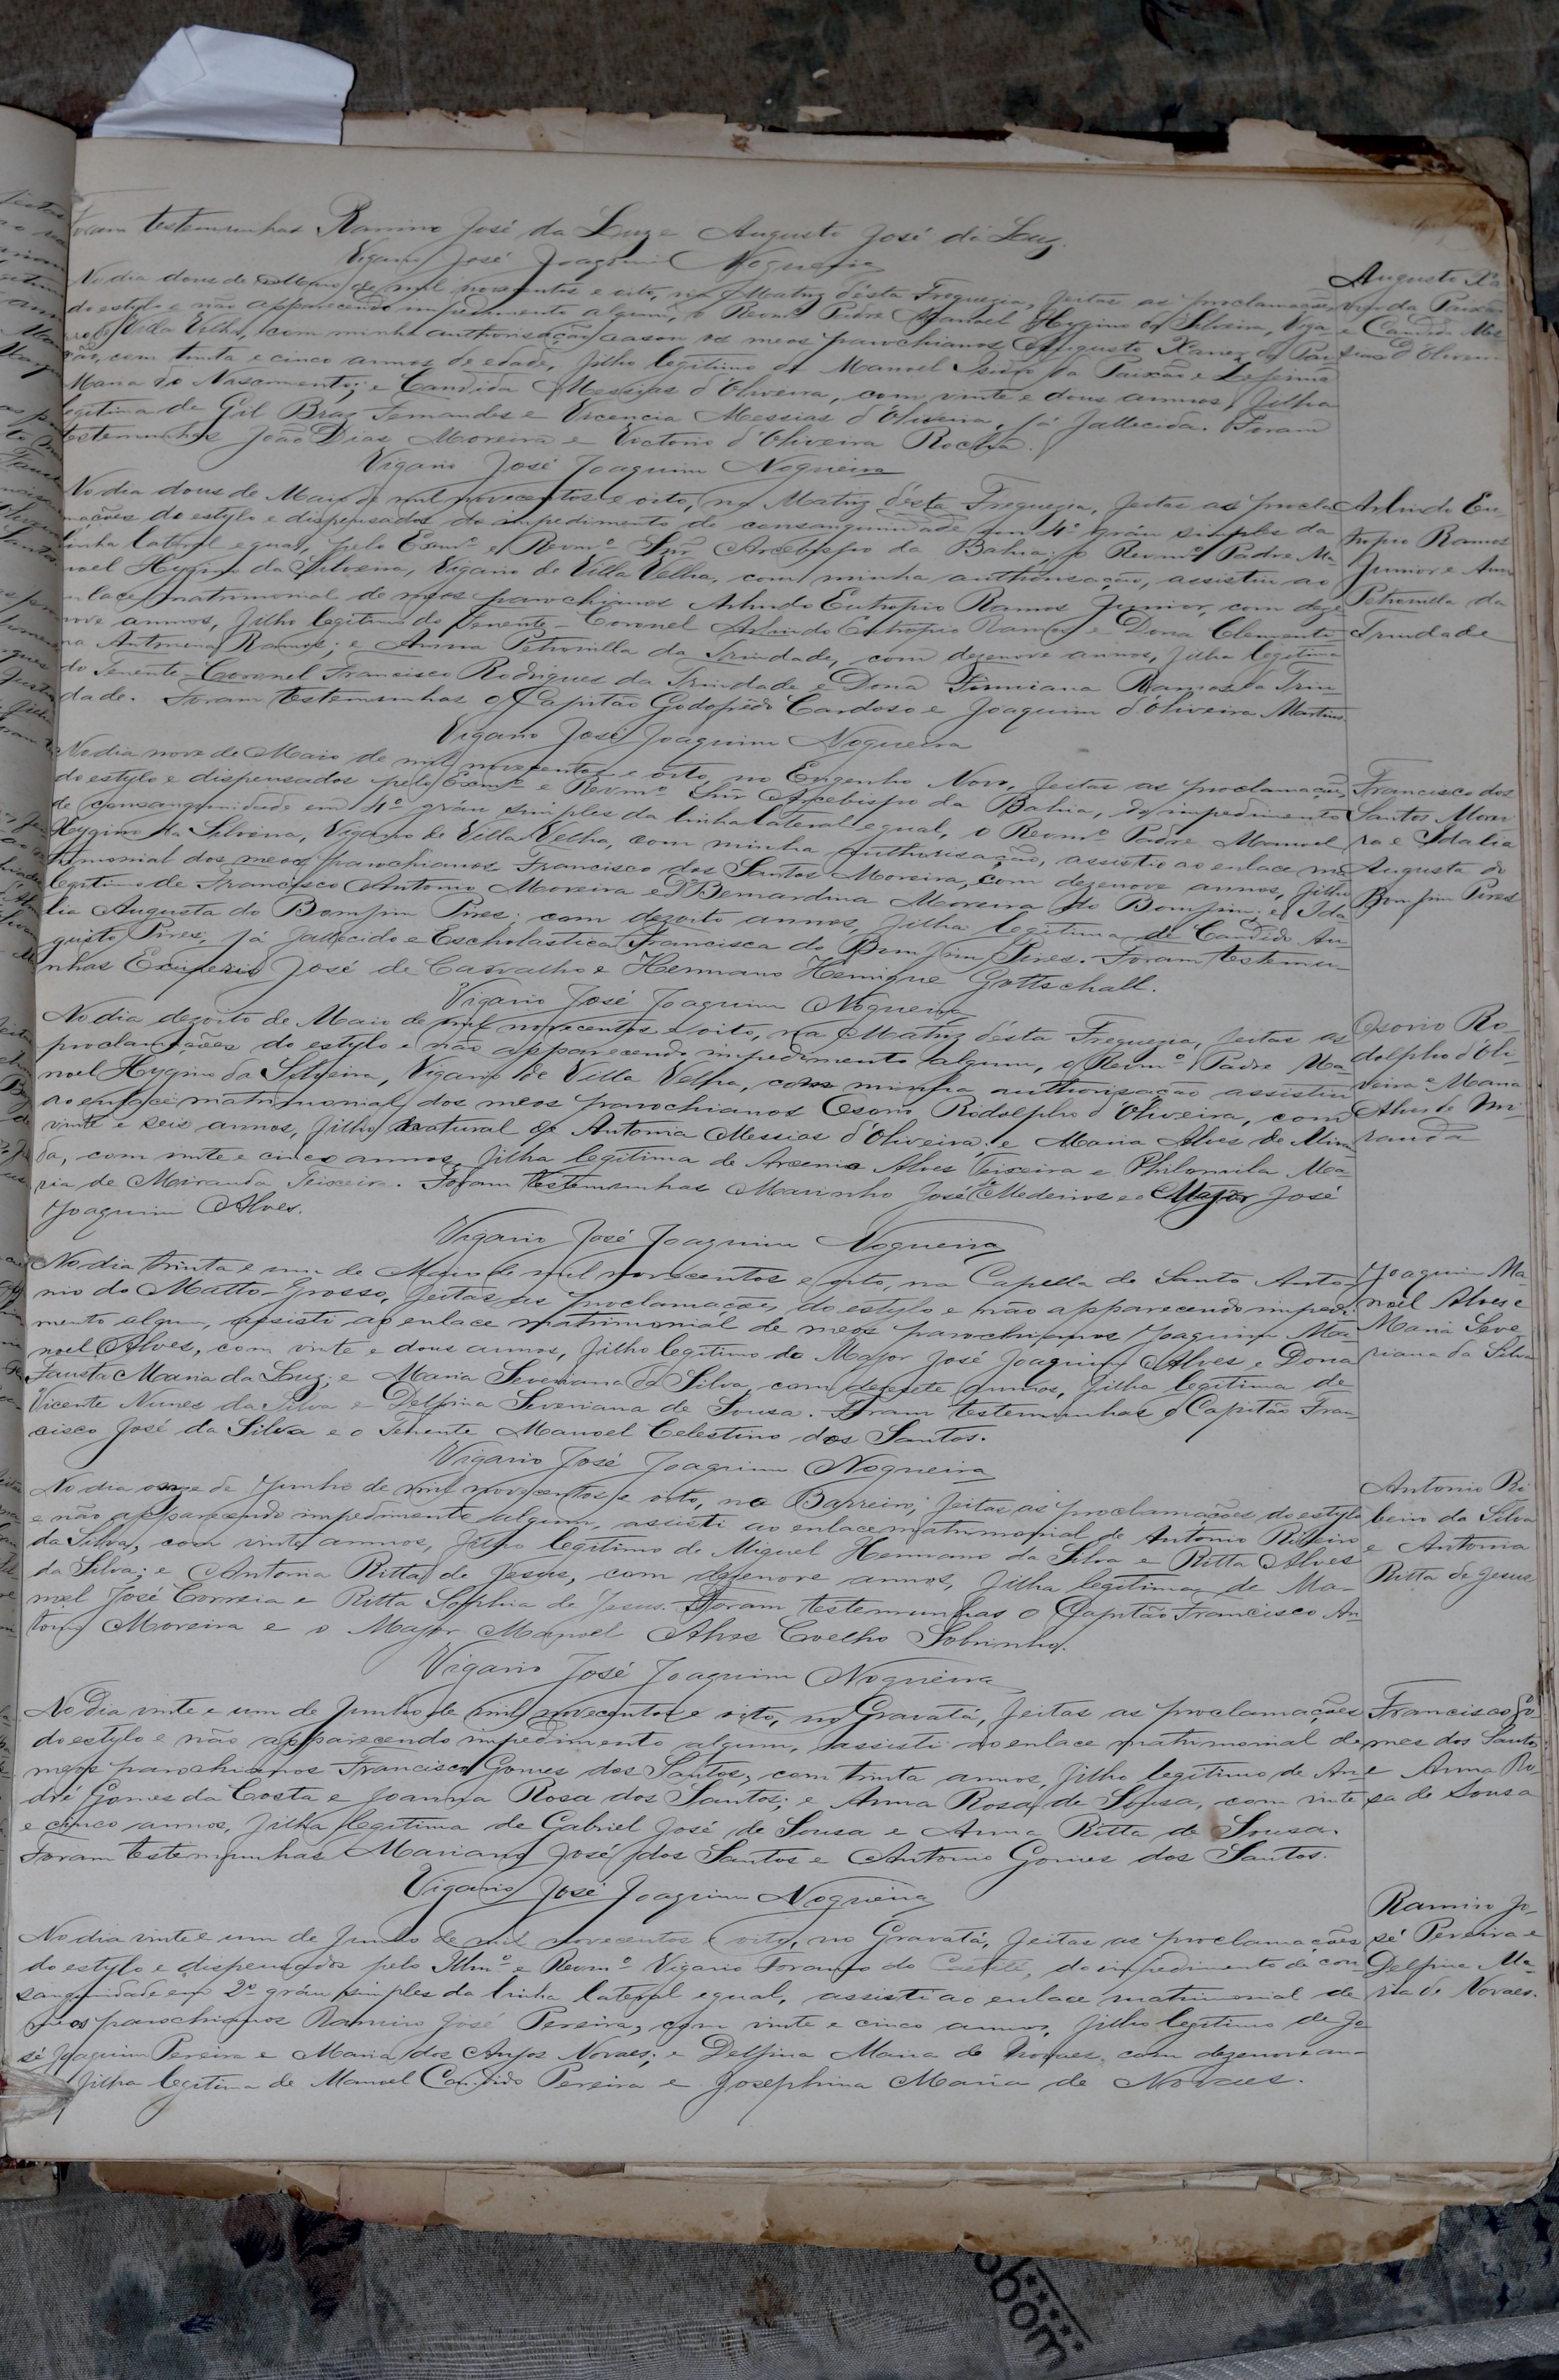 Foram testemunhas Ramiro José da Luz e Augusto José da Luz.
Vigario José Joaquim Nogueira
No dia dous de Maio de mil novecentos e oito, na Matriz d'ésta Freguezia, feitas as proclamações
do estylo e não apparecendo impedimento algum, o Revmº Padre Manoel Hygino da Silveira, Viga
rio de Villa Velha, com minha authorisação casou os meos parochianos Augusto Xavier da Pai
xão, com trinta e cinco annos de edade, filho legitimo de Manoel Isidio da Paixão e Zeferina
Maria do Nascimento; e Candida Messias d'Oliveira, com vinte e dous annos, filha
legitima de Gil Braz Fernandes e Vicencia Messias d'Oliveira, já fallecida. Foram
testemunhas João Dias Moreira e Victorio d'Oliveira Rocha.
Vigario José Joaquim Nogueira
Augusto Xa
vier da Paixão
e Candida Mes
sias d'Oliveira
No dia dous de Maio de mil novecentos e oito, na Matriz d'ésta Freguezia, feitas as procla
mações do estylo e dispensados do impedimento de consanguinidade em 4º gráu simples da
linha lateral egual, pelo Exmº e Revmº Snr Arcebispo da Bahia, o Revmº Padre Ma-
noel Hygino da Silveira, Vigario de Villa Velha, com minha authorisação, assistiu ao
enlace matrimonial de meos parochianos Arlindo Eutropio Ramos Junior, com deze
nove annos, filho legitimo do Tenente-Coronel Arlindo Eutropio Ramos e Dona Clementi
na Antonina Ramos; e Anna Petronilla da Trindade, com dezenove annos, filha legitima
do Tenente-Coronel Francisco Rodrigues da Trindade e Dona Firmiana Ramos da Trin-
dade. Foram testemunhas o Capitão Godofrêdo Cardoso e Joaquim d'Oliveira Martins.
Vigario José Joaquim Nogueira
Arlindo Eu-
tropio Ramos
Junior e Anna
Petronilla da
Trindade
No dia nove de Maio de mil novecentos e oito, no Engenho Novo, feitas as proclamações
do estylo e dispensados pelo Exmº e Revmº Snr Arcebispo da Bahia, do impedimento
de consanguinidade em 4º gráu simples da linha lateral egual, o Revmº Padre Manoel
Hygino da Silveira, Vigario de Villa Velha, com minha authorisação, assistio ao enlace ma
trimonial dos meos parochianos Francisco dos Santos Moreira, com dezenove annos, filho
legitimo de Francisco Antonio Moreira e Dª Bernardina Moreira do Bomfim; e Ida
lia Augusta do Bomfim Pires; com dezoito annos, filha legitima de Candido Au
gusto Pires, já fallecido e Escholastica Francisca do Bomfim Pires. Foram testemu-
nhas Exiperio José de Carvalho e Hermano Henrique Gottschall.
Vigario José Joaquim Nogueira
Francisco dos
Santos Morei
ra e Idalia
Augusta do
Bomfim Pires
No dia dezoito de Maio de mil novecentos e oito, na Matriz d'ésta Freguezia, feitas as
proclamações do estylo e não apparecendo impedimento algum, o Revmº Padre Ma-
noel Hygino da Silveira, Vigario de Villa Velha, com minha authorisação assistiu
ao enlace matrimonial dos meos parochianos Osorio Rodolpho d'Oliveira, com
vinte e seis annos, filho natural de Antonia Messias d'Oliveira; e Maria Alves de Miran
da, com vinte e cinco annos, filha legitima de Arsenio Alves Teixeira e Philomila Ma-
ria de Miranda Teixeira. Foram testemunhas Marinho José de Medeiros e o Major José
Joaquim Alves.
Vigario José Joaquim Nogueira
Osorio Ro-
dolpho d'Oli-
veira e Maria
Alves de Mi-
randa
No dia trinta e um de Maio de mil novecentos e oito, na Capella de Santo Anto-
nio do Matto-Grosso, feitas as proclamações do estylo e não apparecendo impedi-
mento algum, assisti ao enlace matrimonial de meos parochianos Joaquim Ma-
noel Alves, com vinte e dous annos, filho legitimo do Major José Joaquim Alves e Dona
Fausta Maria da Luz; e Maria Severiana da Silva, com dezesete annos, filha legitima de
Vicente Nunes da Silva e Delfina Severiana de Sousa. Foram testemunhas o Capitão Fran-
cisco José da Silva e o Tenente Manoel Celestino dos Santos.
Vigario José Joaquim Nogueira
Joaquim Ma
noel Alves e
Maria Seve
riana da Silva
No dia onze de Junho de mil novecentos e oito, no Barreiro, feitas as proclamações do estylo
e não apparecendo impedimento algum, assisti ao enlace matrimonial de Antonio Ribeiro
da Silva, com vinte annos, filho legitimo de Miguel Hermano da Silva e Ritta Alves
da Silva; e Antonia Ritta de Jesus, com dezenove annos, filha legitima de Ma-
noel José Correia e Ritta Sophia de Jesus. Foram testemunhas o Capitão Francisco An-
tonio Moreira e o Major Manoel Alves Coelho Sobrinho.
Vigario José Joaquim Nogueira
Antonio Ri
beiro da Silva
e Antonia
Ritta de Jesus
No Dia vinte e um de Junho de mil novecentos e oito, no Gravatá, feitas as proclamações
do estylo e não apparecendo impedimento algum, assisti ao enlace matrimonial de
meos parochianos Francisco Gomes dos Santos, com trinta annos, filho legitimo de An-
dré Gomes da Costa e Joanna Rosa dos Santos; e Anna Rosa de Sousa, com vinte
e cinco annos, filha legitima de Gabriel José de Sousa e Anna Ritta de Sousa.
Foram testemunhas Mariano José dos Santos e Antonio Gomes dos Santos.
Vigario José Joaquim Nogueira
Francisco Go-
mes dos Santos
e Anna Ro-
sa de Sousa
No dia vinte e um de Junho de mil novecentos e oito, no Gravatá, feitas as proclamações
do estylo e dispensados pelo Illmº e Revmº Vigario Foraneo do Caetité, do impedimento de con-
sanguinidade em 2º gráu simples da linha lateral egual, assisti ao enlace matrimonial de
meos parochianos Ramiro José Pereira, com vinte e cinco annos, filho legitimo de Jo
sé Joaquim Pereira e Maria dos Anjos Novaes; e Delfina Maria de Novaes, com dezenove an-
filha legitima de Manoel Candido Pereira e Josephina Maria de Novaes.
Ramiro Jo-
sé Pereira e
Delfina Ma-
ria de Novaes.